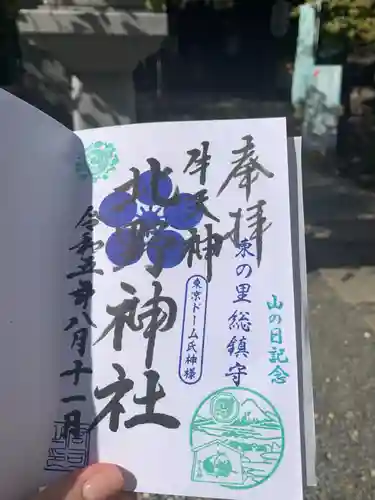 奉拝
山の日記念
東の里総鎮守
牛天神
東京ドーム氏神様
北野神社
令和五年八月十一月